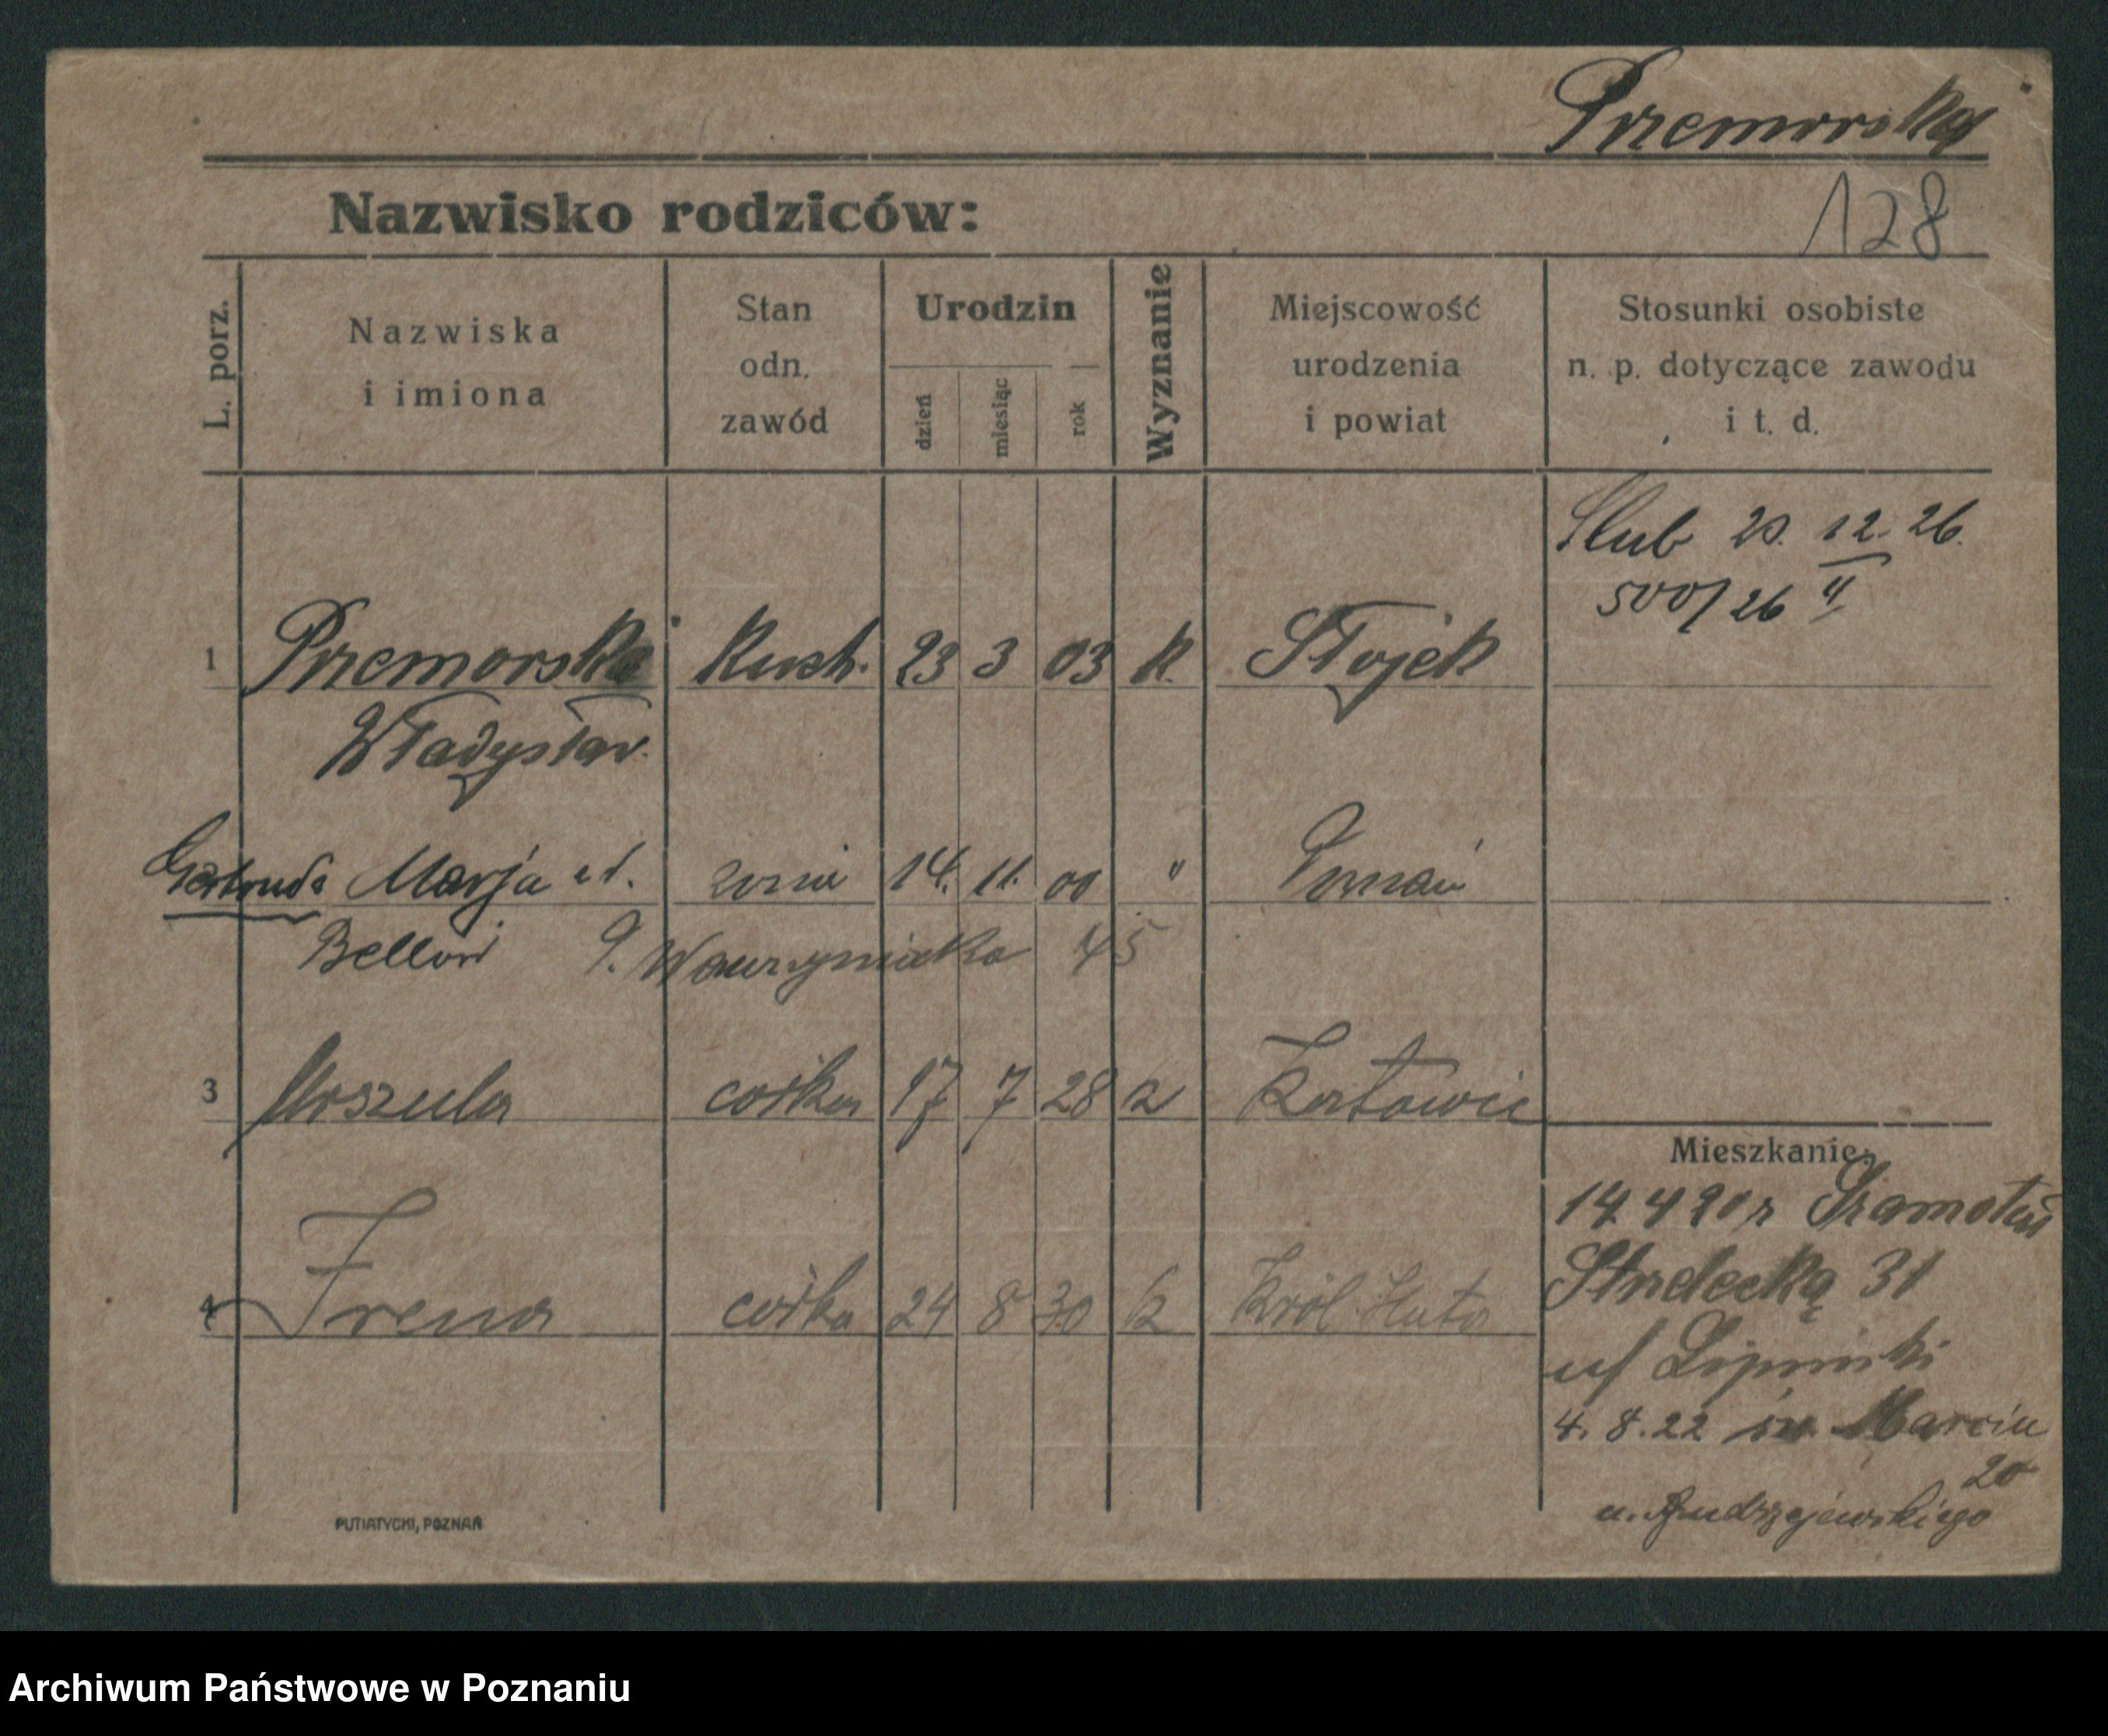 Przemorski
128
Nazwisko rodziców:
L. porz.
Nazwiska
i imiona
Stan
odn.
zawód
Urodzin
dzień
miesiąc
rok
Wyznanie
Miejscowość
urodzenia
i powiat
Stosunki osobiste
n. p. dotyczące zawodu
i t. d.
Ślub 20. 12. 26.
500/26 II
1 Przemorski 23 3 03 k.
Władysław
Gertruda Marja żona 14. 11. 00 " Poznań
Wawrzyniaka 45
3 Urszula córka 17 7 28 k Katowic
4 Irena córka 24 8 30 k Król. Huta
Mieszkanie:
Strzelecka 31
u/ Lipiński
4. 8. 22 św. Marcin
20
u. Andrzejewskiego
PUTIATYCKI, POZNAŃ
Archiwum Państwowe w Poznaniu